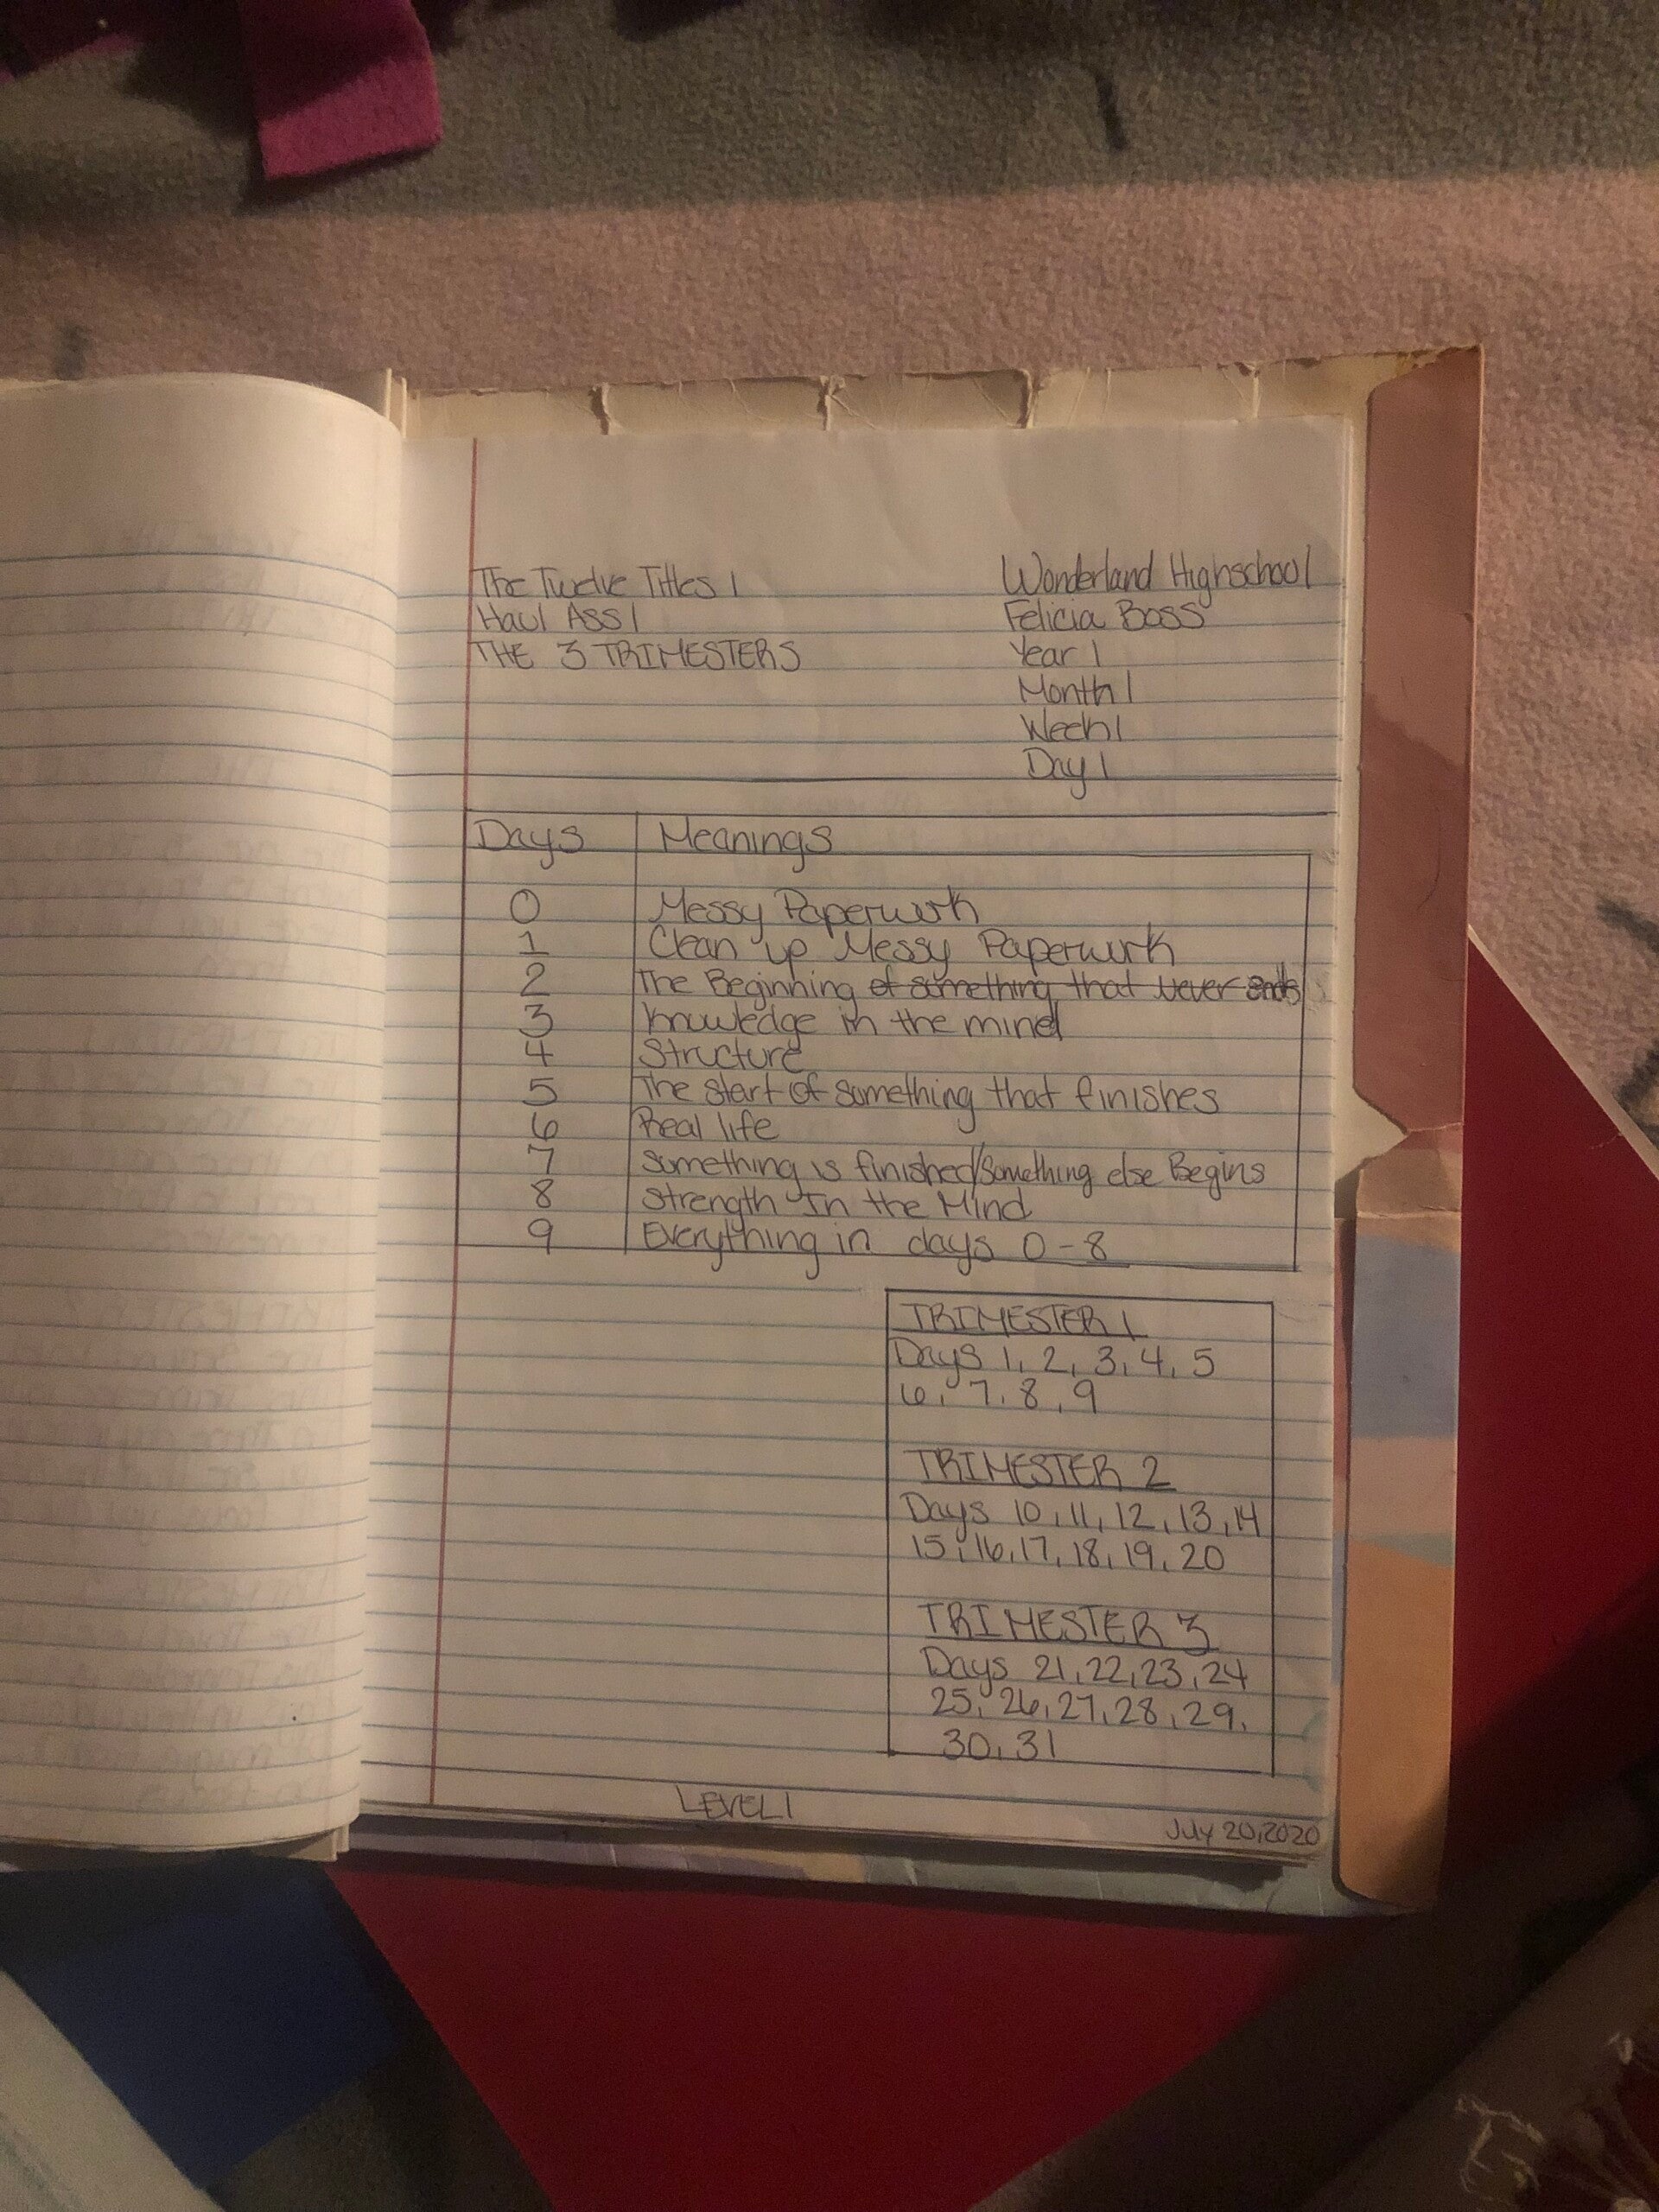 The Twelve Titles 1
Haul Ass 1
THE 3 TRIMESTERS
Wonderland Highschool
Felicia Boss
Year 1
Month 1
Week 1
Day 1
Days Meanings
0 Messy Paperwurk
1 Clean up Messy Paperwurk
2 The Beginning of something that never ends
3 Knowledge in the mind
4 Structure
5 The start of something that finishes
6 Real life
7 Something is finished/Something else Begins
8 Strength In the Mind
9 Everything in days 0-8
TRIMESTER 1
Days 1, 2, 3, 4, 5
6, 7, 8, 9
TRIMESTER 2
Days 10, 11, 12, 13, 14
15, 16, 17, 18, 19, 20
TRIMESTER 3
Days 21, 22, 23, 24
25, 26, 27, 28, 29,
30, 31
LEVEL 1
July 20, 2020